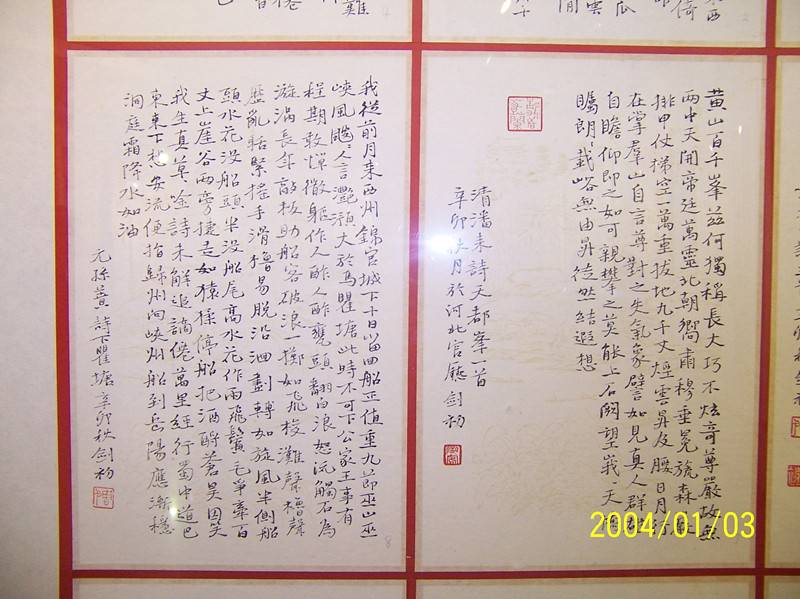 黃山百千峯茲何獨稱長大巧不炫奇尊嚴故無
兩中天開帝廷萬靈北朝嚮肅穆垂冕旒森
排甲仗梯空一萬重拔地九千丈煙雲昇及腰日月行
在掌羣山自言尊對之失氣象譬如見真人群
自瞻仰即之如可親攀之莫能上石闕望峩
矚朗載峪無由昇徒然結遐想
清潘耒詩天都峯一首
辛卯秋月於河北官廳劍初
我從前月來西州錦官城下十日留回船正值重九節巫山巫
峽風颼人言灩澦大於馬瞿塘此時不可下公家王事有
程期敢憚微軀作人鮓人鮓甕頭翻白浪怒沅觸石為
漩渦長年敲板助船客破浪一擲如飛梭灘聲櫓聲
歷亂聒緊搖手滑櫓易脫沿洄劃轉如旋風半側船
頭水花沒船頭半沒船尾高水花作雨飛鬢毛爭牽百
丈上崖谷兩旁捷走如猿猱停船把酒酹蒼昊因笑
我生真草途詩未解追謫倦萬里經行蜀中道巴
東東下想安流便指歸州向峽州船到岳陽應漸穩
洞庭霜降水如油
元孫蕡詩下瞿塘辛卯秋劍初
2004/01/03